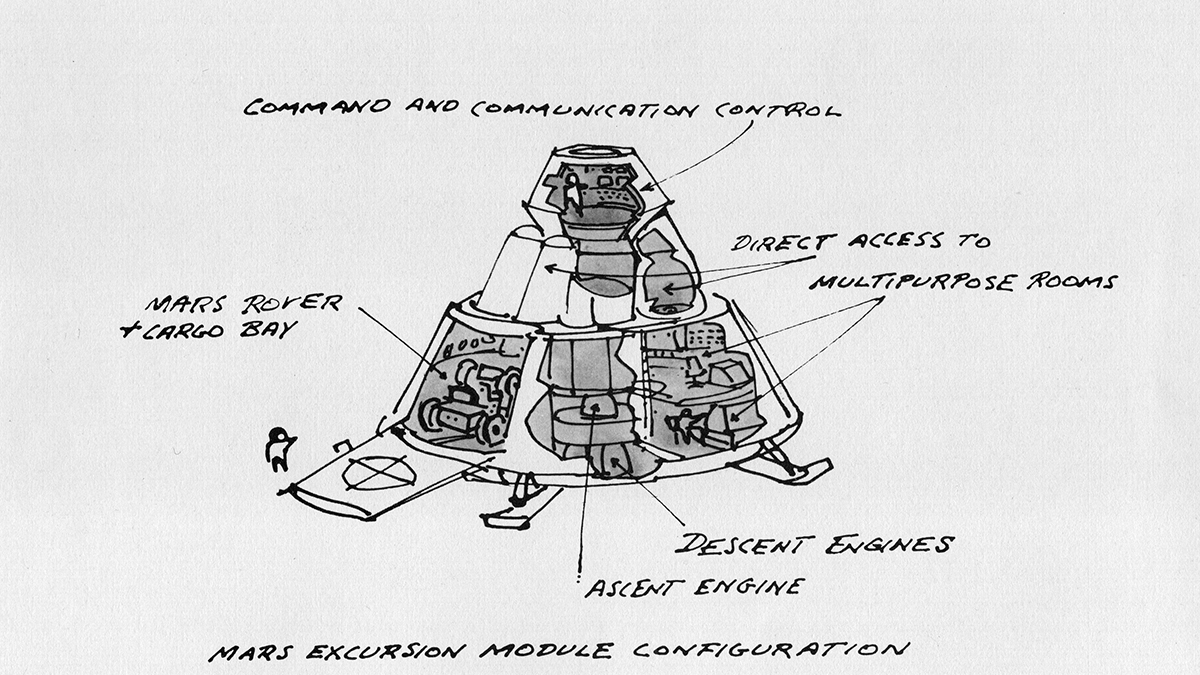 COMMAND AND COMMUNICATION CONTROL
DIRECT ACCESS TO
MULTIPURPOSE ROOMS
MARS ROVER
+ CARGO BAY
DESCENT ENGINES
ASCENT ENGINE
MARS EXCURSION MODULE CONFIGURATION